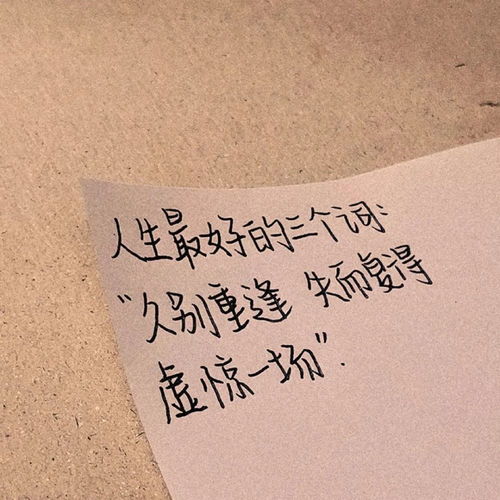 人生最好的三个词:
"久别重逢 失而复得
虚惊一场".